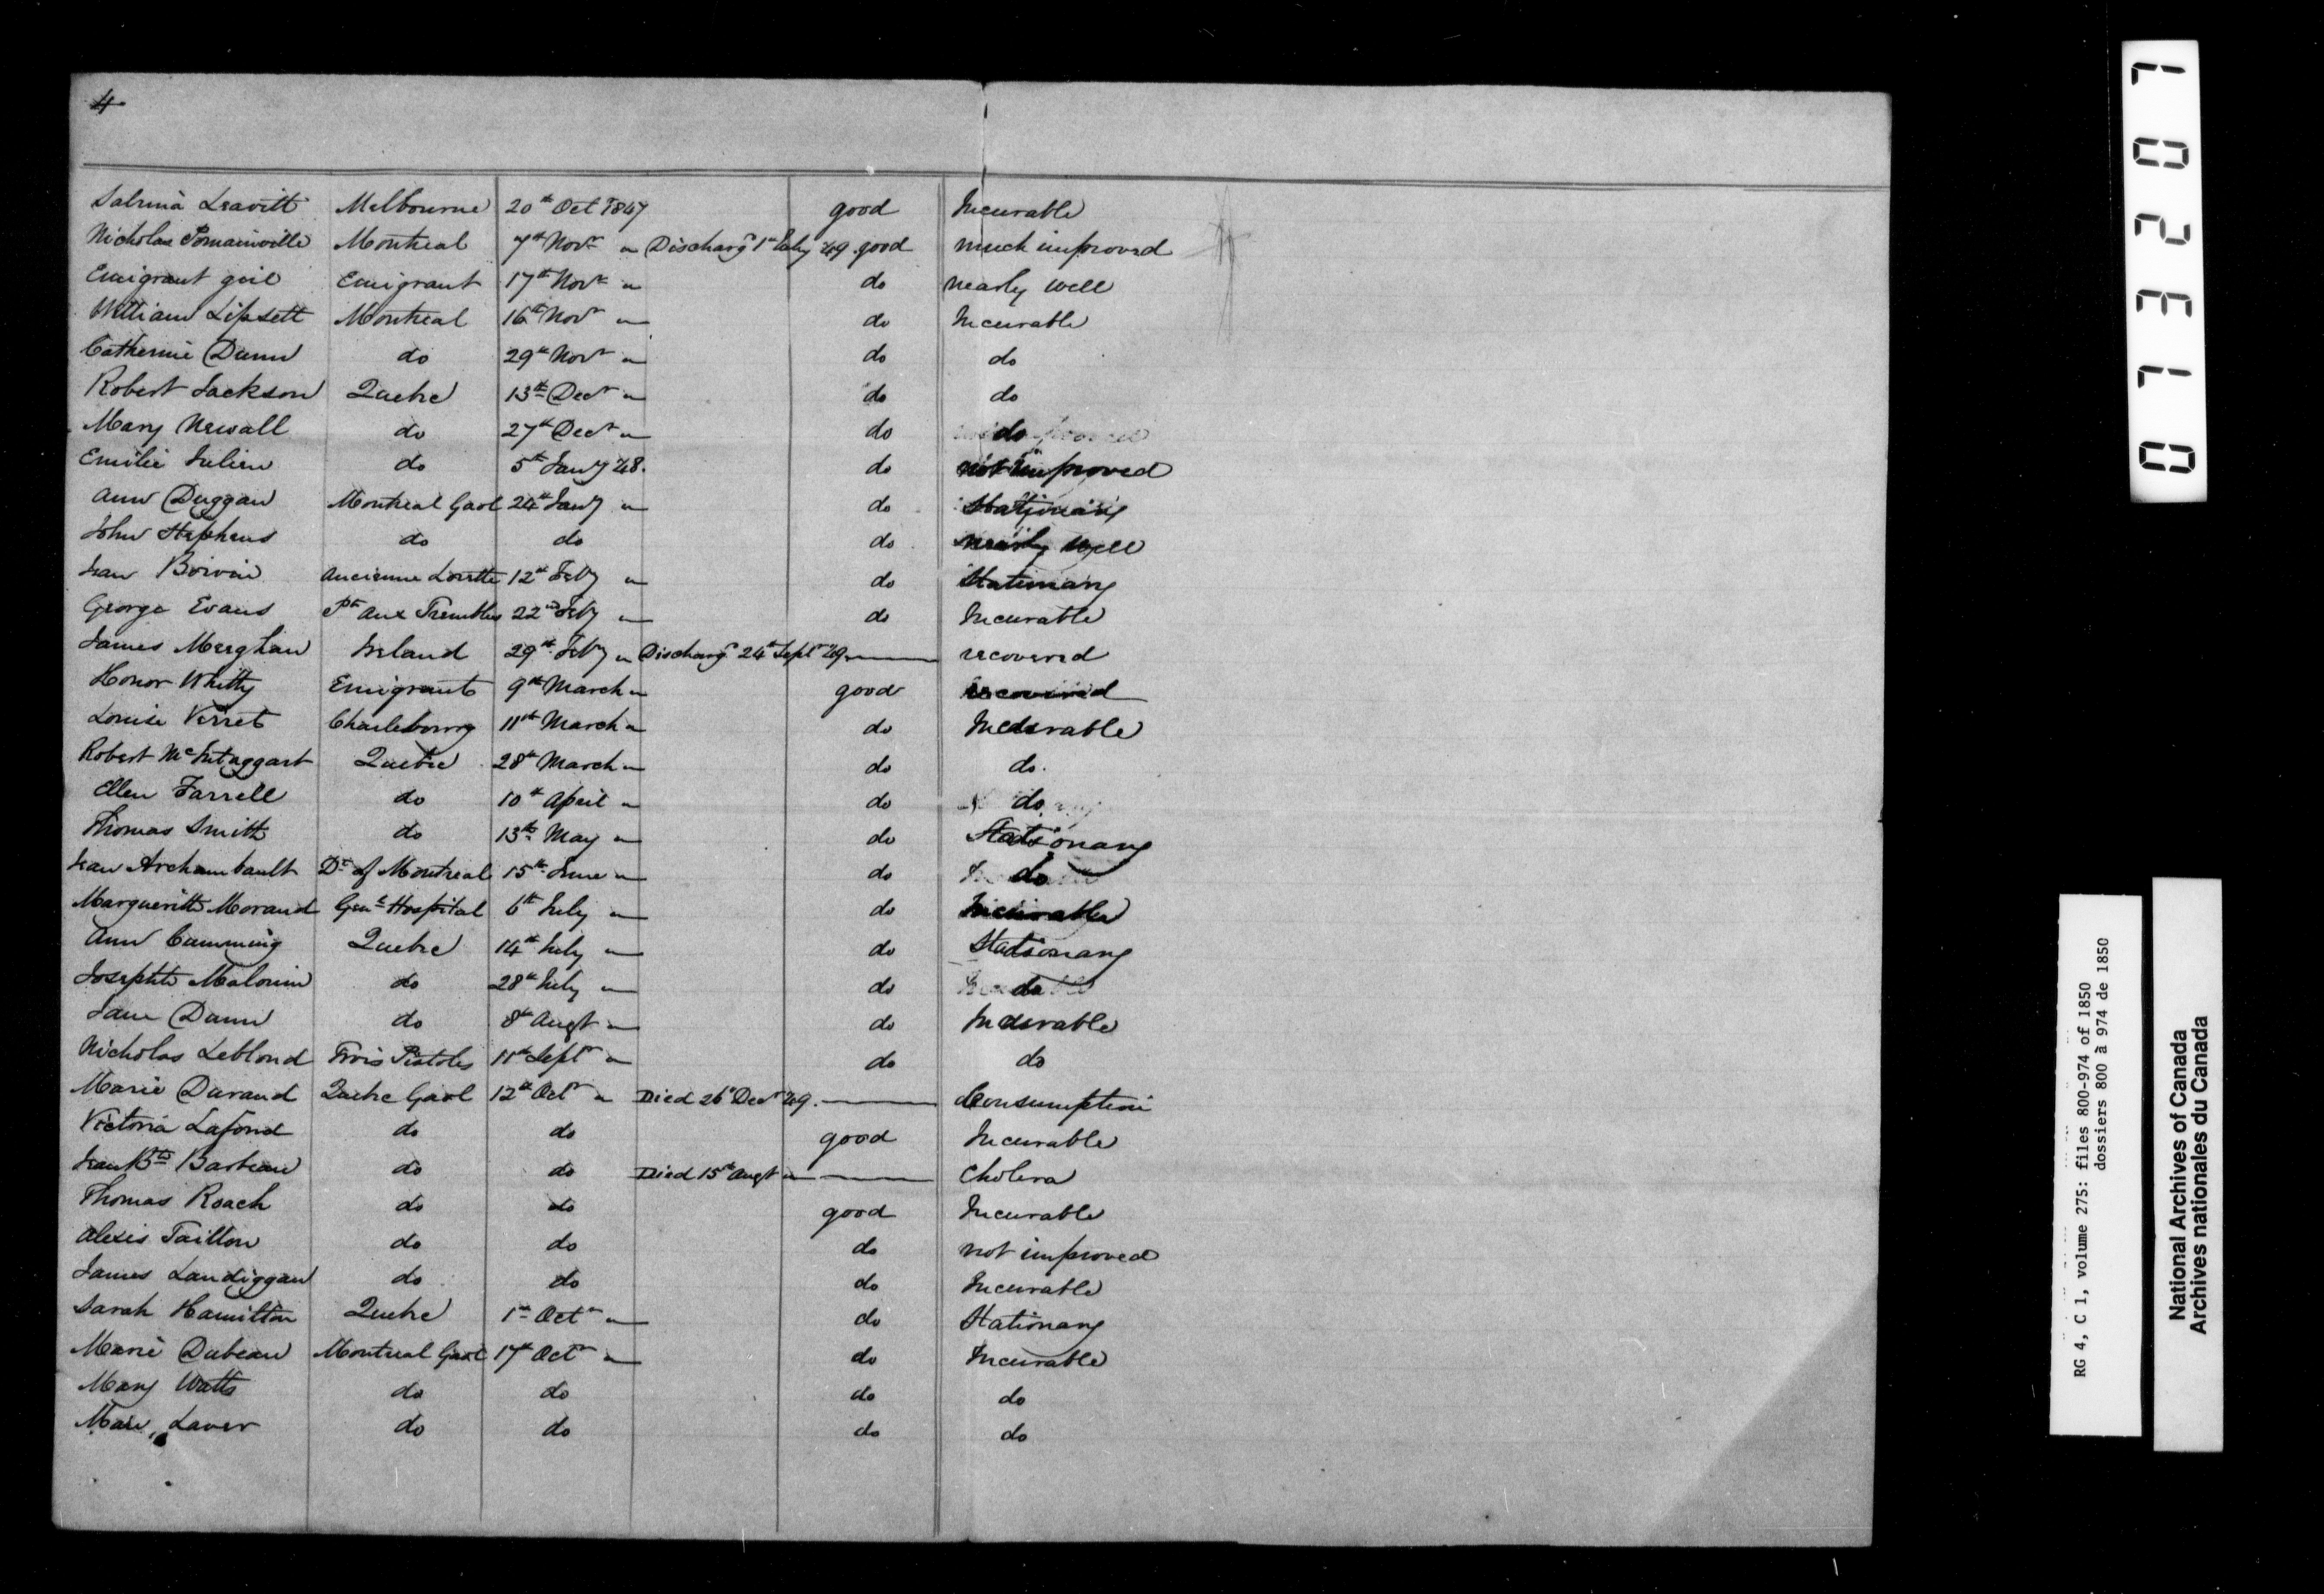 4
Sabrina Leavitt Melbourne 20th Oct 1847 good Incurable
Nicholas Romainville Montreal 7th Novr " Discharg'd 1st July 49 good much improved
Emigrant girl Emigrant 17th Novr " do nearly well
William Lipsett Montreal 16th Novr " do Incurable
Catherine Dunn do 29th Novr " do do
Robert Jackson Quebec 13th Decr " do do
Mary Newall do 27th Decr " do do
Emilie Julien do 5th Jany 48. do not improved
Ann Duggan Montreal Gaol 24th Jany " do Stationary
John Stephens do do do nearly well
Jean Boivin Ancienne Lorette 12th Feby " do Stationary
George Evans Pte aux Trembles 22nd Feby " do Incurable
James Merghan Ireland 29th Feby " Discharg'd 24th Septr 49 recovered
Honor Whitty Emigrant 9th March " good recovered
Louise Verret Charlesbourg 11th March " do Incurable
Robert McIntaggart Quebec 28th March " do do.
Ellen Farrell do 10th April " do do
Thomas Smith do 13th May " do Stationary
Jean Archambault Dt of Montreal 15th June " do do
Margueritte Morand Genl Hospital 6th July " do Incurable
Ann Cumming Quebec 14th July " do Stationary
Josephte Malouin do 28th July " do do
Jane Dunn do 8th Augt " do Incurable
Nicholas Leblond Trois Pistoles 11th Septr " do do
Marie Durand Quebec Gaol 12th Octr " Died 26th Decr 49. Consumption
Victoria Lafond do do good Incurable
Jean Bte Barbeau do do Died 15th Augt " Cholera
Thomas Roach do do good Incurable
Alexis Taillon do do do not improved
James Landiggan do do do Incurable
Sarah Hamilton Quebec 1st Octr " do Stationary
Marie Dubeau Montreal Gaol 17th Octr " do Incurable
Mary Watts do do do do
Marie Laver do do do do
071307
RG 4, C 1, volume 275: files 800-974 of 1850
dossiers 800 à 974 de 1850
National Archives of Canada
Archives nationales du Canada